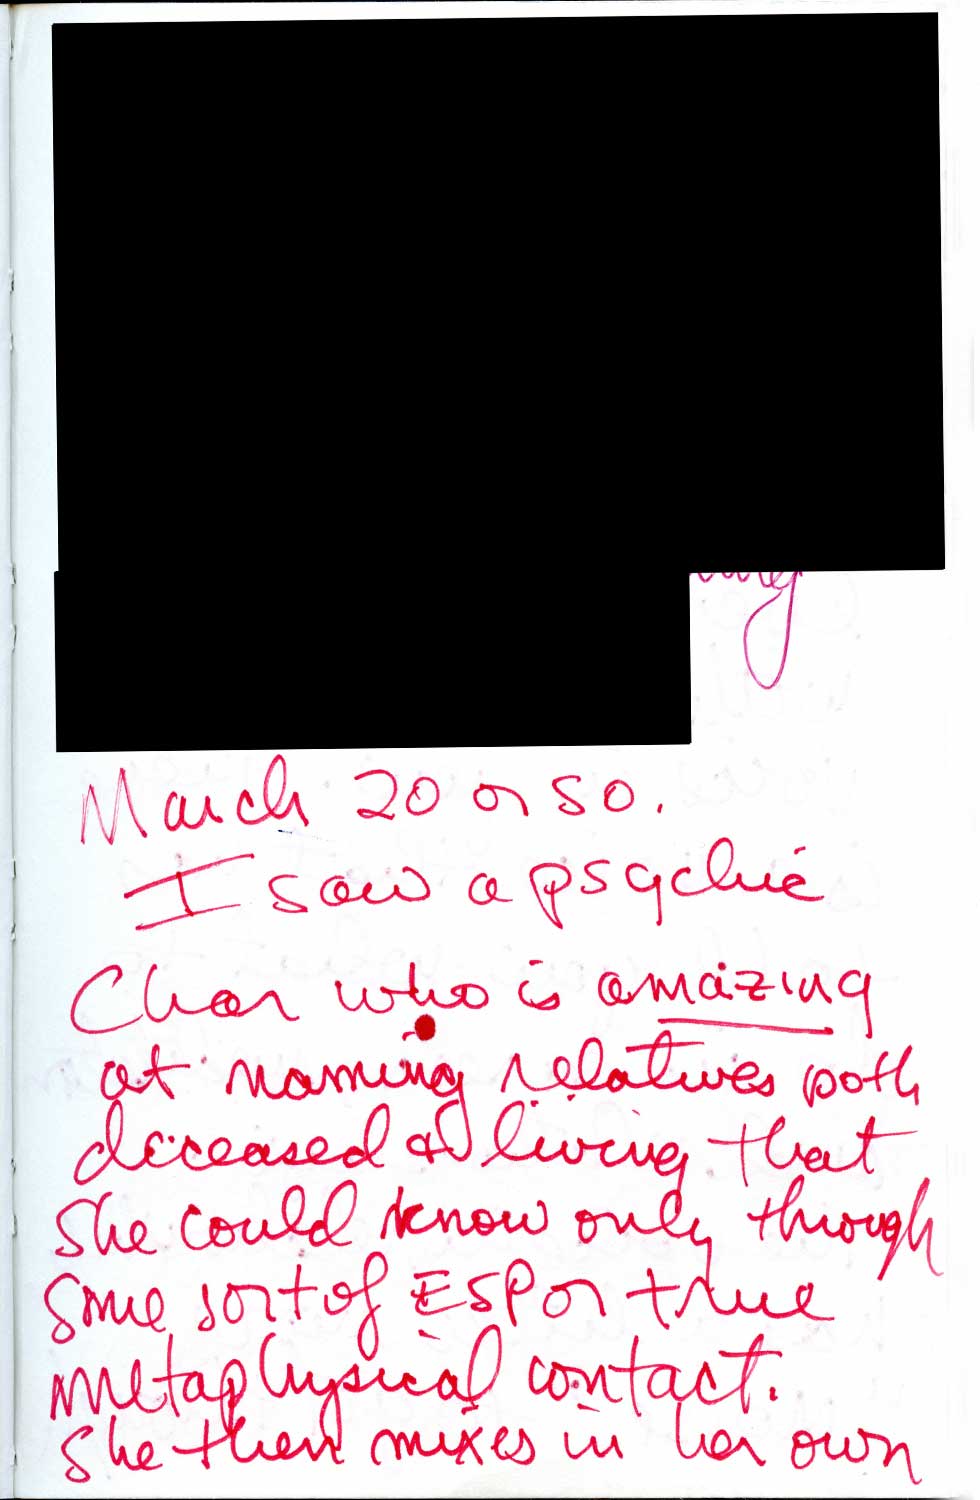 March 20 or so.
I saw a psychic
Char who is amazing
at naming relatives both
deceased & living that
She could know only through
Some sort of ESP or true
metaphysical contact.
She then mixes in her own